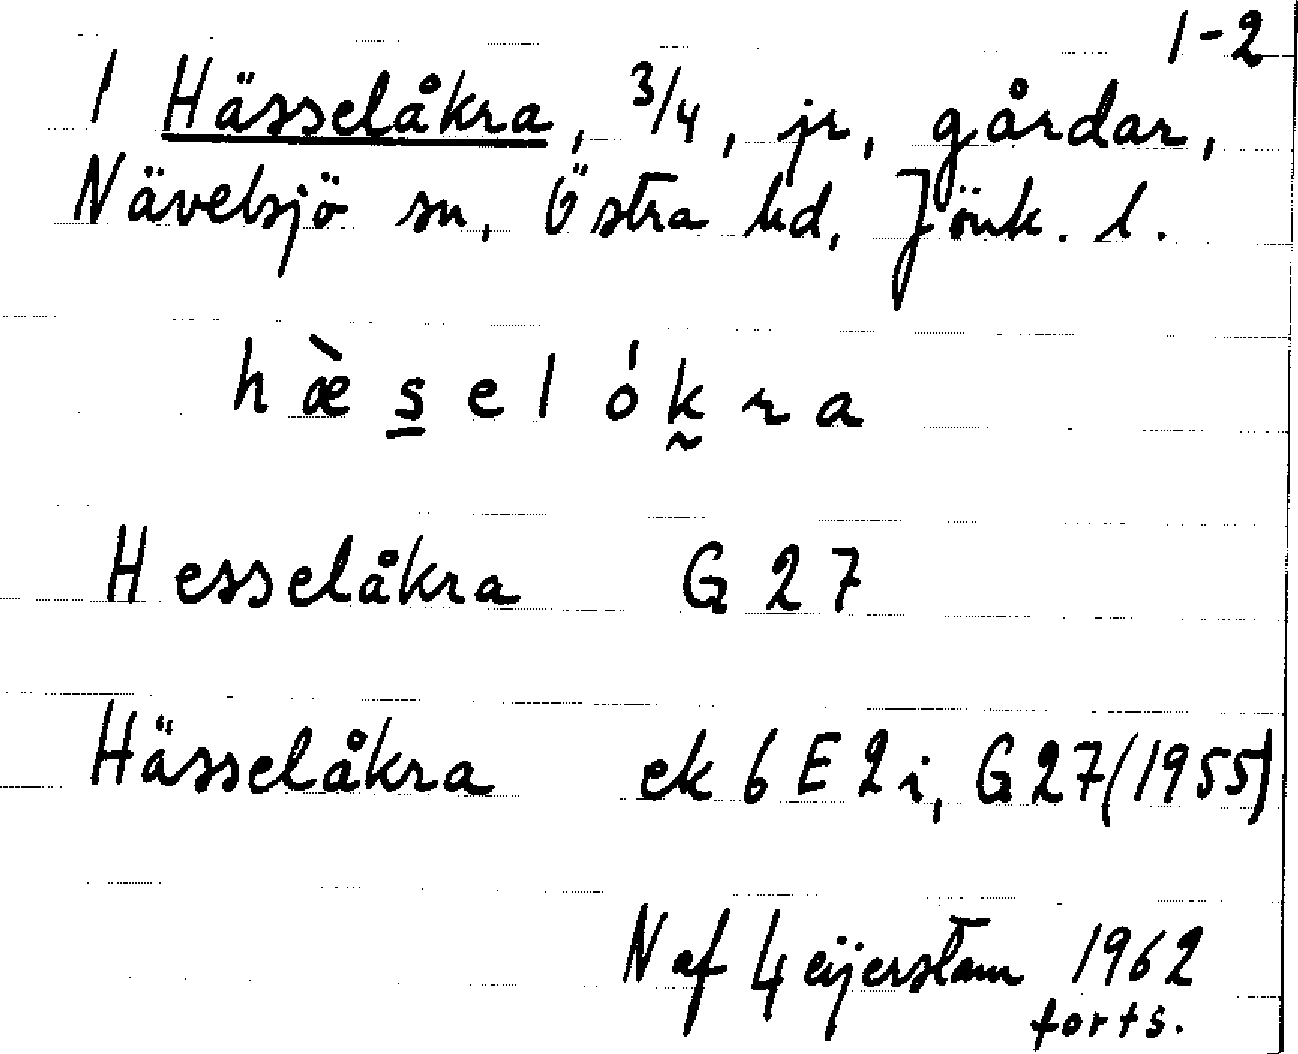 1-2
1 Hässelåkra, 3/4, jr, gårdar,
Nävelsjö sn, Östra hd, Jönk. l.
hæ̀s̲elók̰ra
Hesselåkra G 27
Hässelåkra ek 6 E 2 i, G 27 (1955)
N af Geijerstam 1962
forts.